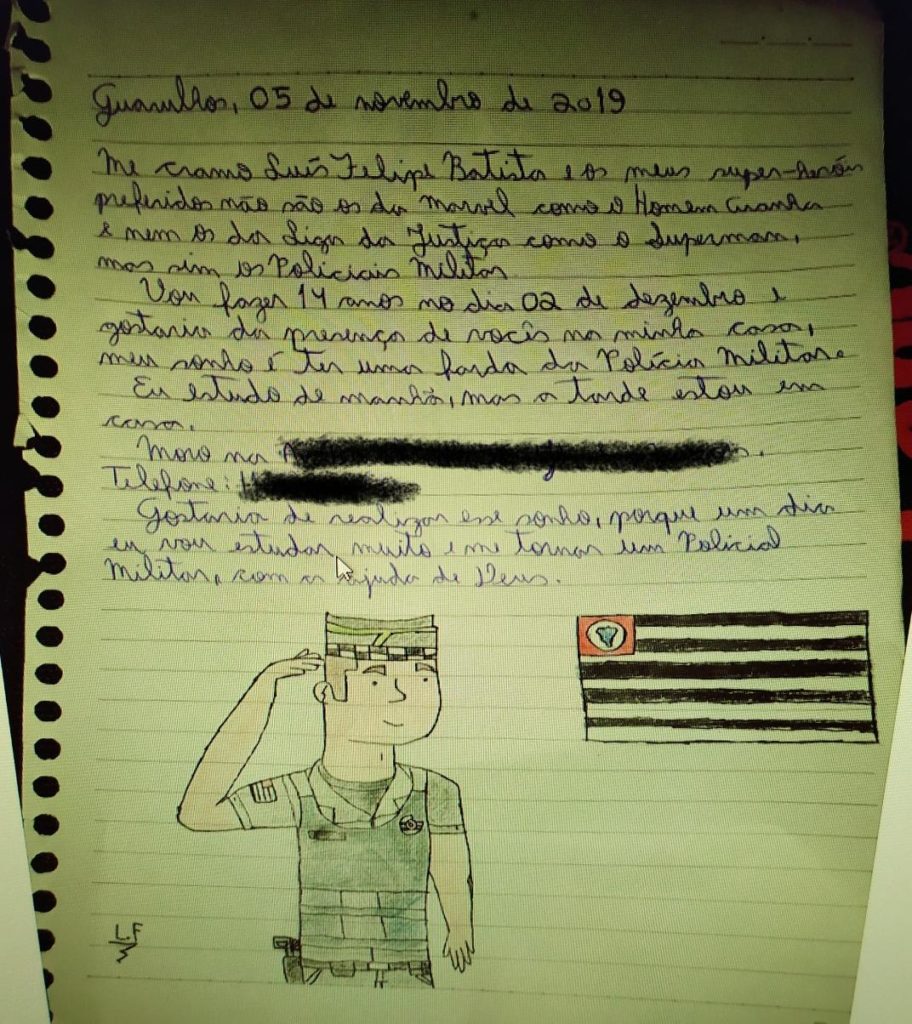 Guarulhos, 05 de novembro de 2019
Me chamo Luís Felipe Batista e os meus super-heróis
preferidos não são os da Marvel como o Homem Aranha
e nem os da Liga da Justiça como o Supermam,
mas sim os Policiais Militar
Vou fazer 14 anos no dia 02 de dezembro e
gostaria da presença de vocês na minha casa,
meu sonho é ter uma farda da Polícia Militar.
Eu estudo de manhã, mas a tarde estou em
casa.
Moro na
Telefone:
Gostaria de realizar esse sonho, porque um dia
eu vou estudar muito e me tornar um Policial
Militar, com a ajuda de Deus.
L.F